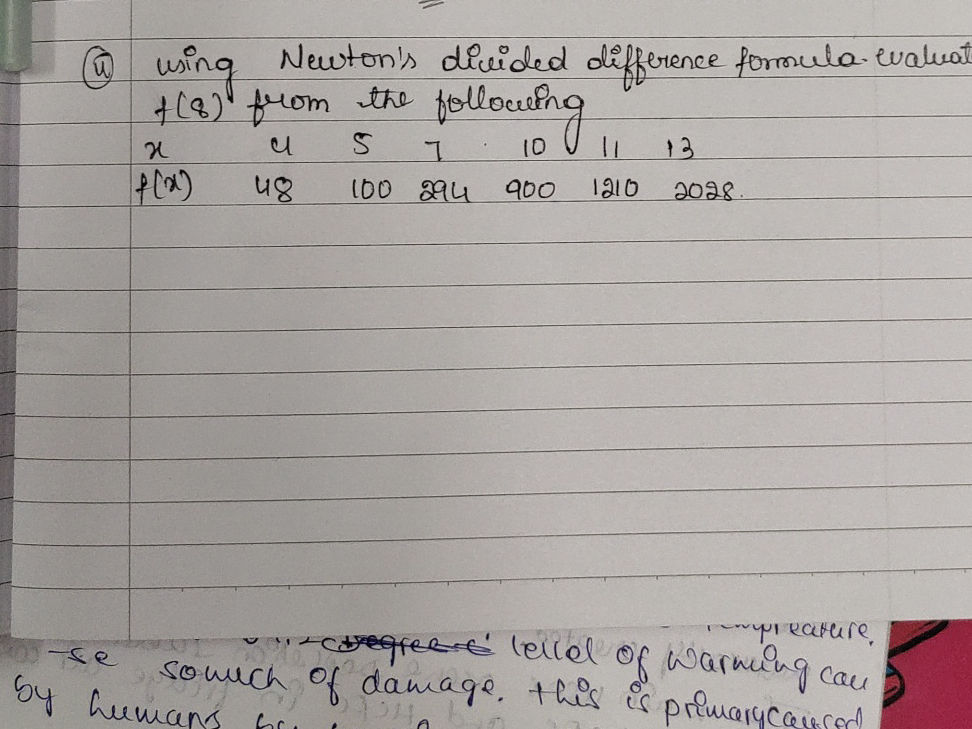 ii using Newton's divided difference formula. evaluat
f(8) from the following
x 4 5 7 10 11 13
f(x) 48 100 294 900 1210 2028.
level of warming cau
-se so much of damage. this is primary caused
by humans